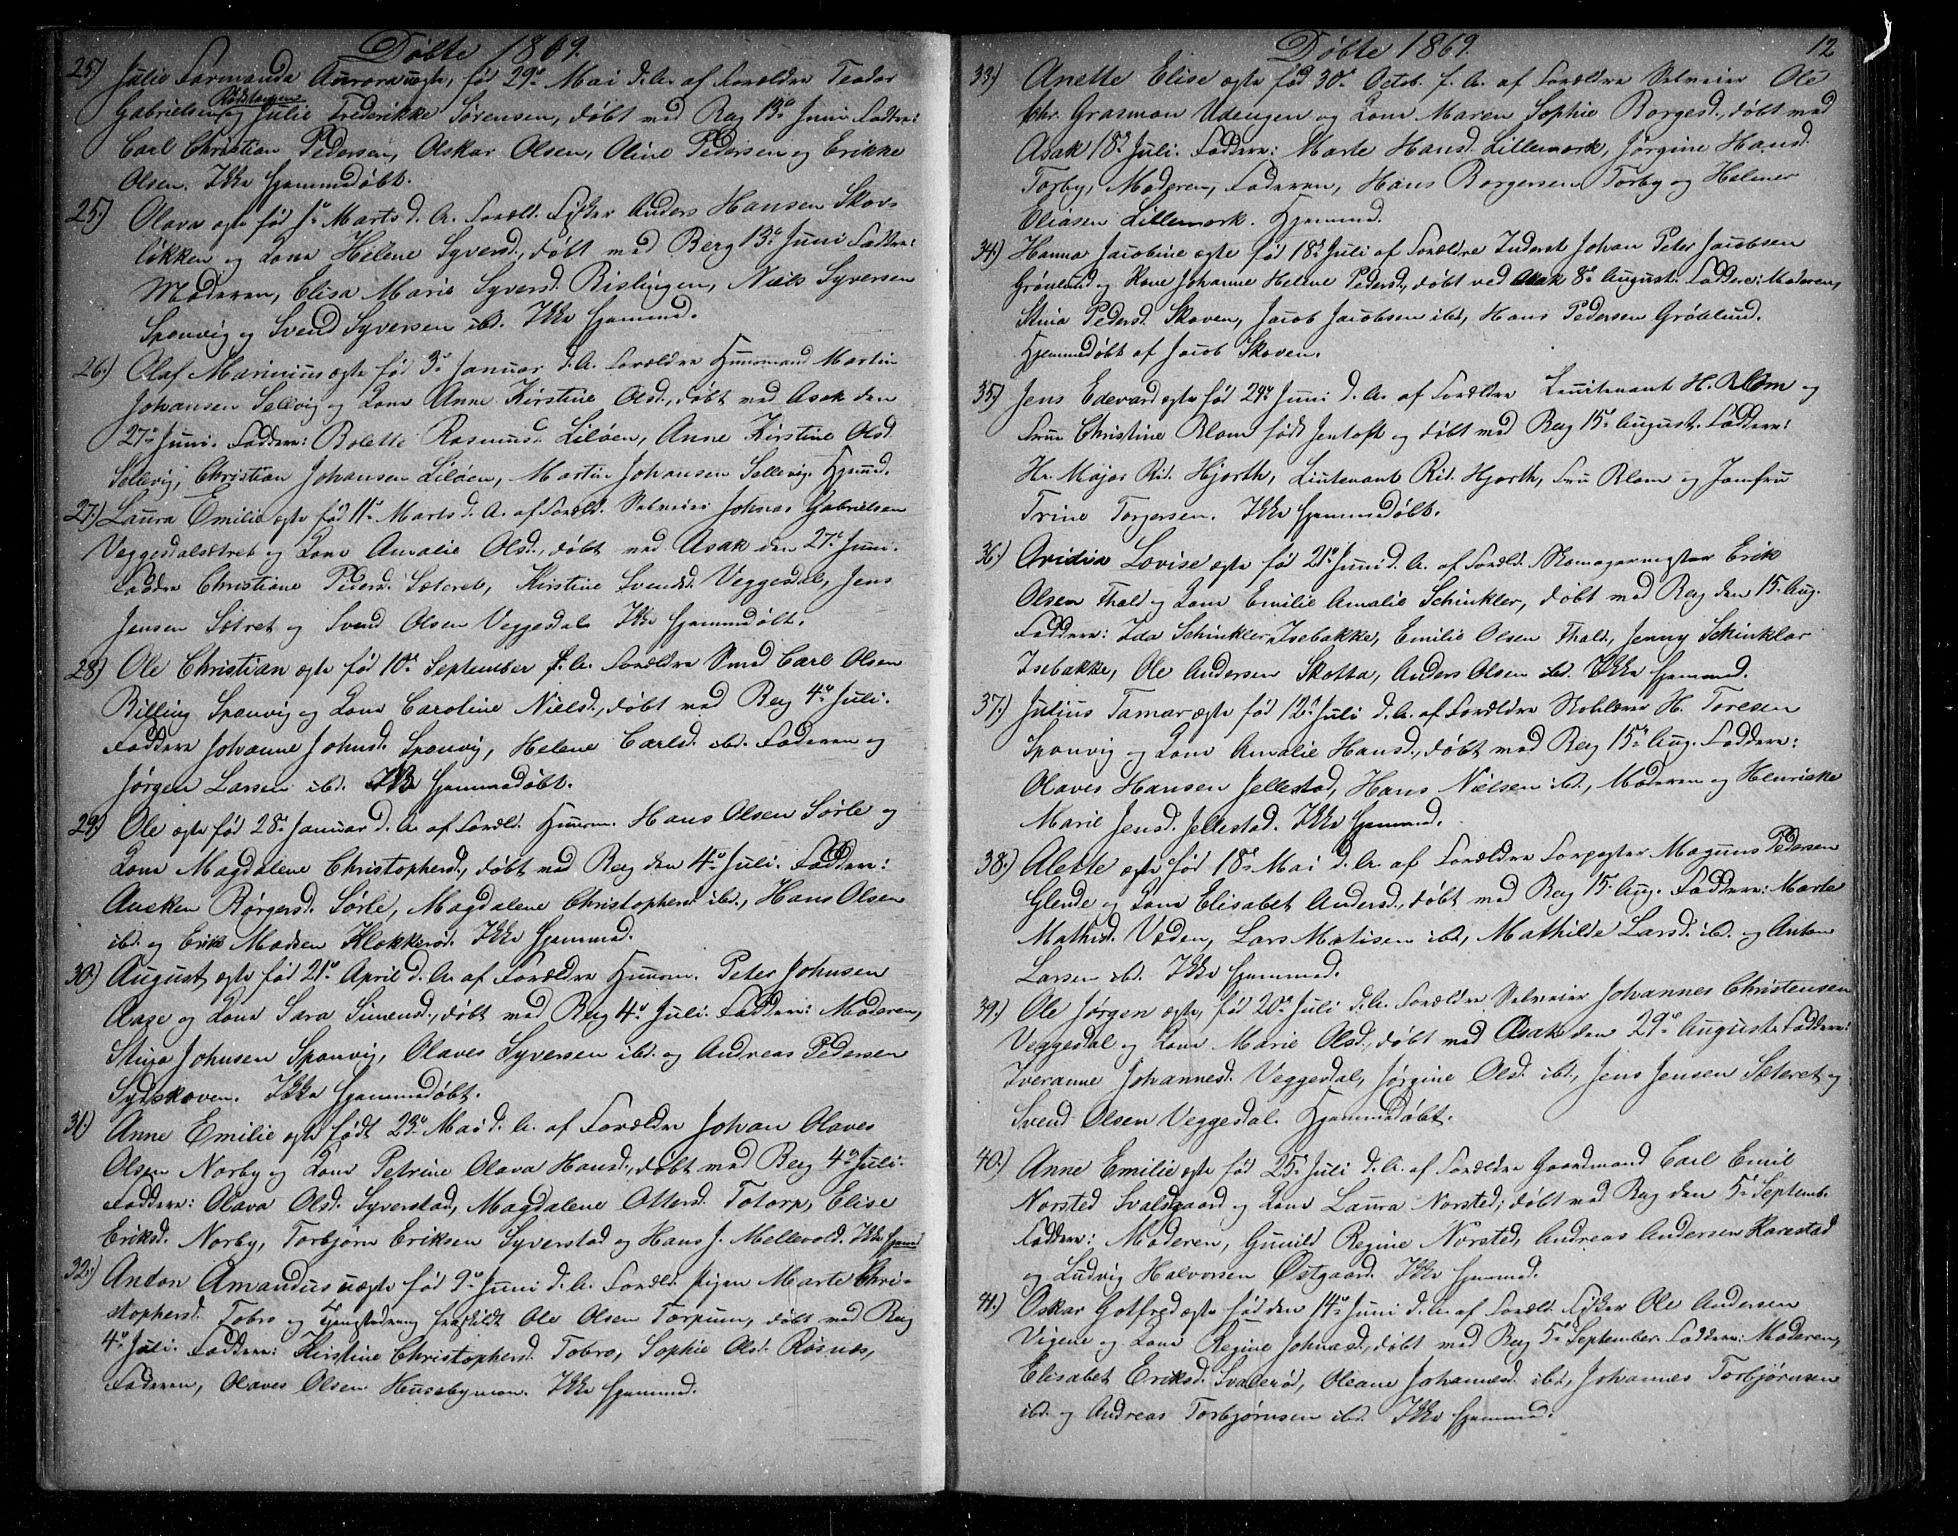 Døbte 1869.
25.) Julie Farmanda Aurora uægte, før 29de Mai d. A. af Forældre Teodor
Rødstangen
Gabrielsen og Julie Frederikke Sørensen, døbt ved Berg 13de Juni Faddere:
Carl Christian Pedersen, Oskar Olsen, Oline Pedersen og Erikke
Olsen. Ikke hjemmedøbt.
25.) Olava ægte fød 1ste Marts d. A. Foræld. Anders Hansen Skov-
løkken og Kone Helene Syversd., døbt ved Berg 13de Juni Faddere:
Moderen, Elisa Marie Syversd. Rislingen, Niels Syversen
Sponvig og Svend Syversen ibd. Ikke hjemmed.
26.) Olaf Marinius ægte fød 3de Januar d. A. Forældre Huusmand Martin
Johansen Sellvig og Kone Anne Kirstine Olsd., døbt ved Asak den
27de Juni. Faddere: Bolette Rasmusd. Liløen, Anne Kirstine Olsd.
Sellevig, Christian Johansen Liløen, Martin Johansen Sellevig. Hjemmed.
27.) Laura Emilie ægte fød 11te Marts d. A. af Foræld. Selveier Johnas Gabrielsen
Veggesdalsætret og Kone Amalie Olsd., døbt ved Asak den 27de Juni.
Faddere Christiane Pedersd. Sæteret, Kirstine Svendsd. Veggesdal, Jens
Jensen Sætret og Svend Olsen Veggesdal. Ikke hjemmedøbt.
28.) Ole Christian ægte fød 10de September f. A. Forældre Smed Carl Olsen
Billing Sponvig og Kone Caroline Nielsd., døbt ved Berg 4de Juli.
Faddere Johanne Johnsd. Sponvig, Helene Carlsd. ibd. Faderen og
Jørgen Larsen ibd. Ikke hjemmedøbt.
29.) Ole ægte fød 28de Januar d. A. af Foræld. Huusm. Hans Olsen Sørle og
Kone Magdalene Christophersd., døbt ved Berg den 4de Juli. Faddere:
Aneken Børgersd. Sørle, Magdalene Christophersd. ibd., Hans Olsen
ibd. og Erik Madsen Klokkerød. Ikke hjemmed.
30.) August ægte fød 21de April d. A. af Forældre Huusm. Peter Johnsen
Aase og Kone Sara Simensd., døbt ved Berg 4de Juli. Faddere: Moderen,
Stina Johnsen Sponvig, Olaves Syversen ibd. og Andreas Pedersen
Sydskoven. Ikke hjemmedøbt.
31.) Anne Emilie ægte født 23de Mai d. A. af Forældre Johan Olaves
Olsen Norby og Kone Petrine Olava Hansd., døbt ved Berg 4de Juli.
Faddere: Olava Olsd. Syverstad, Magdalene Ottersd. Totorp, Elise
Eriksd. Norby, Torbjørn Eriksen Syverstad og Hans J. Mellevold. Ikke hjemmed.
32.) Anton Amandus uægte fød 9de Juni d. A. Foræld. Pigen Marte Chri-
stophersd. Tobro og Ole Olsen Torpum, døbt ved Berg
4de Juli. Faddere: Kirstine Christophersd. Tobro, Sophie Olsd. Røsnes,
Faderen, Olaves Olsen Husebymoen. Ikke hjemmed.
Døbte 1869. 12
33.) Anette Elise ægte fød 30te Octob. f. A. af Forældre Selveier Ole
Chr. Grasmon Udengen og Kone Maren Sophie Borgesd., døbt ved
Asak 18de Juli. Faddere: Marte Hansd. Lillemork, Jørgine Hansd.
Torby, Moderen, Faderen, Hans Borgersen Torby og Helmer
Eliasen Lillemork. Hjemmed.
34.) Hanna Jacobine ægte fød 18de Juli af Forældre Inderst Johan Peter Jacobsen
Grønlund og Kone Johanne Helene Pedersd., døbt ved Asak 8de August. Faddere: Moderen,
Stina Pedersd. Skoven, Jacob Jacobsen ibd., Hans Pedersen Grønlund.
Hjemmedøbt af Jacob Skoven.
35.) Jens Edevard ægte fød 29de Juni d. A. af Forældre Leuitenant H. Blom og
Frue Christine Blom født Jentoft og døbt ved Berg 15de August. Faddere:
Hr. Major Rit. Hjorth, Lieutenant Rit. Hjorth, Fru Blom og Jomfru
Trine Torgersen. Ikke hjemmedøbt.
36.) Ovidia Lovise ægte fød 21de Juni d. A. af Foræld. Skomagermester Erik
Olsen Thold og Kone Emilie Amalie Schinkler, døbt ved Berg den 15. Aug.
Faddere: Ida Schinkler Isebakke, Emilie Olsen Thold, Jenny Schinkler
Isebakke, Ole Andersen Skotta, Anders Olsen ibd. Ikke hjemmed.
37.) Julius Tamar ægte fød 12te Juli d. A. af Forældre Skolelærer H. Toresen
Sponvig og Kone Amalie Hansd., døbt ved Berg 15de Aug. Faddere:
Olaves Hansen Jellestad, Hans Nielsen ibd., Moderen og Henrieke
Marie Jensd. Jellestad. Ikke hjemmed.
38.) Alette ægte fød 18de Mai d. A. af Forældre Forpagter Magnus Pedersen
Glende og Kone Elisabet Andersd., døbt ved Berg 15. Aug. Faddere: Marte
Mathisd. Veden, Lars Matisen ibd., Mathilde Larsd. ibd. og Anton
Larsen ibd. Ikke hjemmed.
39.) Ole Jørgen ægte, fød 20de Juli d. A. Forældre Selveier Johannes Christensen
Veggesdal og Kone Marie Olsd., døbt ved Asak den 29de August. Faddere:
Iveranne Johannesd. Veggesdal, Jørgine Olsd. ibd., Jens Jensen Sæteret og
Svend Olsen Veggesdal. Hjemmedøbt.
40.) Anne Emilie ægte fød 25de Juli d. A. af Forældre Gaardmand Carl Emil
Norsted Svalsgaard og Kone Laura Norsted, døbt ved Berg den 5te Septemb.
Faddere: Moderen, Gunild Regine Norsted, Andreas Andersen Karestad
og Ludvig Halvorsen Østgaard. Ikke hjemmed.
41.) Oskar Gotfred ægte fød den 14de Juni d. A. af Foræld. Ole Andersen
Vigene og Kone Regine Johnasd., døbt ved Berg 5te September. Faddere: Moderen,
Elisabet Eriksd. Svalerød, Oleane Johannesd. ibd., Johannes Torbjørnsen
ibd. og Andreas Torbjørnsen ibd. Ikke hjemmed.